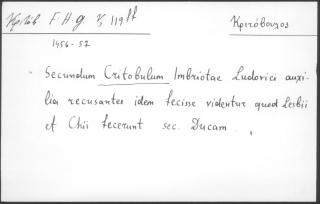 Κριτόβ F.H.g V, 119 ff
Κριτόβουλος
1456-57
Secundum Critobulum Imbriotae Ludovici auxi-
lia recusantes idem fecisse videntur quod Lesbii
et Chii fecerunt sec. Ducam.